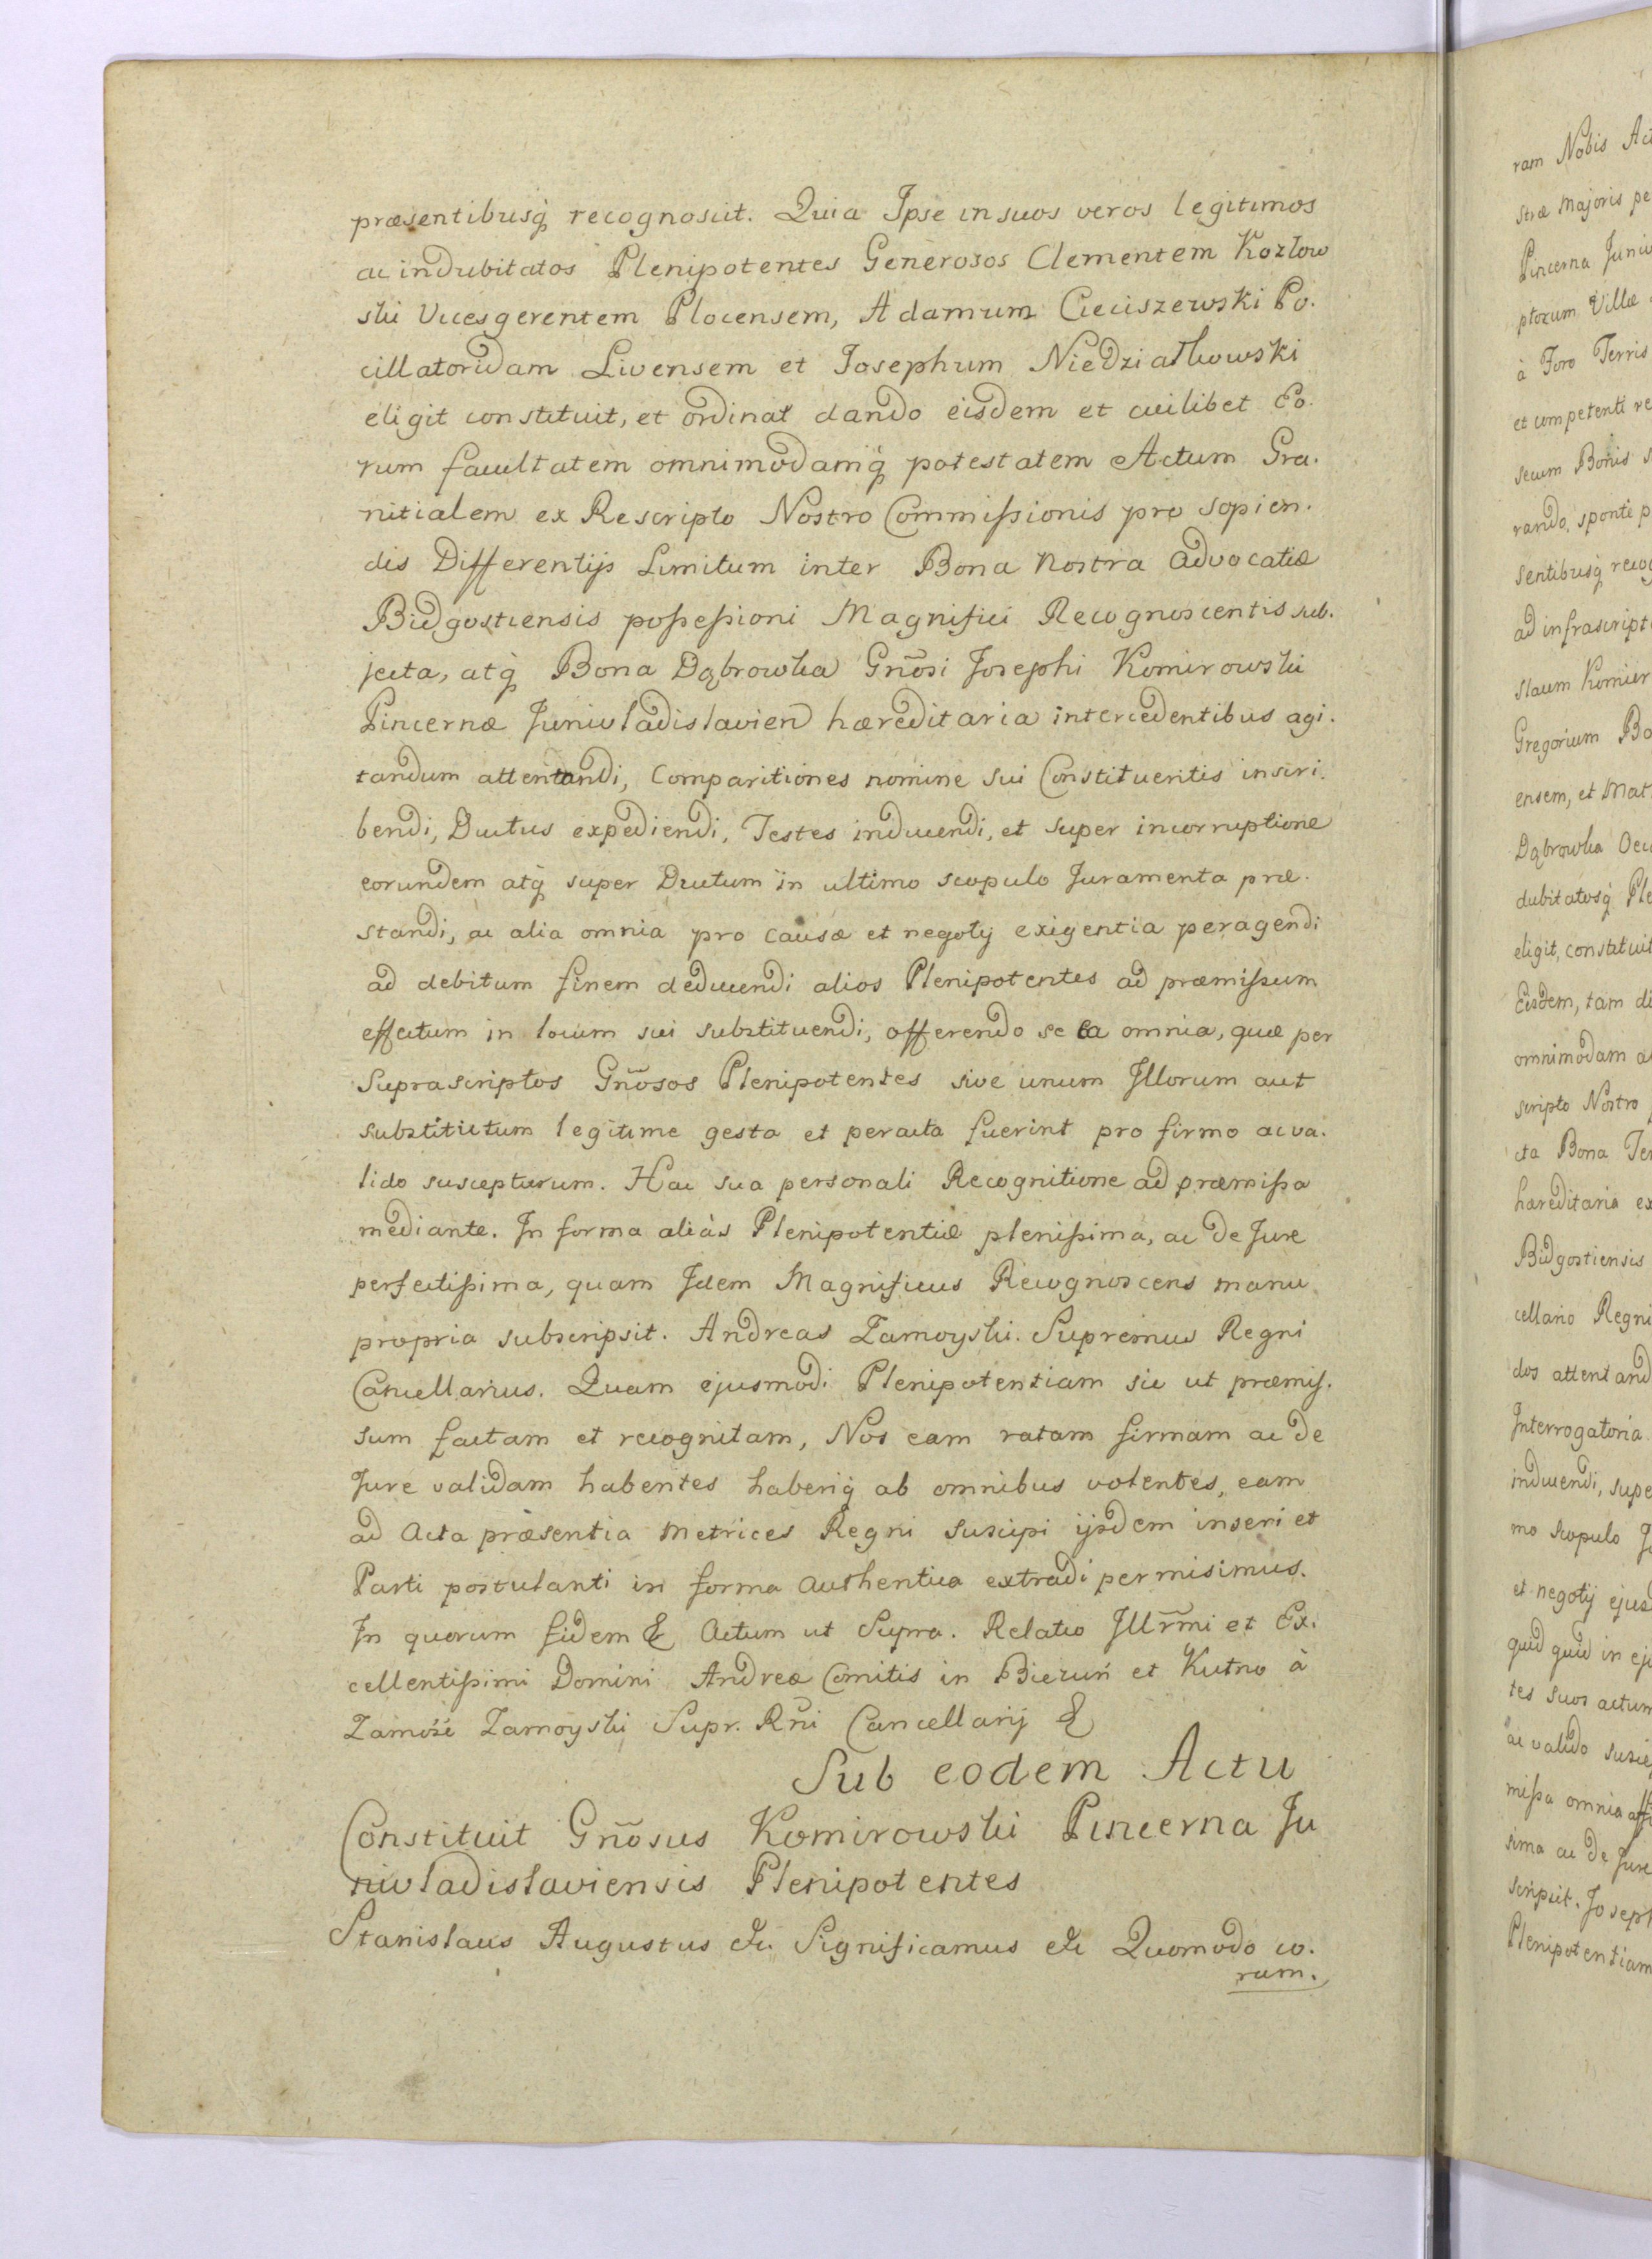 præsentibusq̀ recognoscit. Quia Ipse in suos veros legitimos
ac indubitatos Plenipotentes Generosos Clementem Kozłow
ski Vicesgerentem Plocensem, Adamum Cieciszewski Po.
cillatoridam Livensem et Josephum Niedziałkowski
eligit constituit, et ordinat dando eisdem et cuilibet Eo.
rum facultatem omnimodamq̀ potestatem Actum Gra.
nitialem ex Rescripto Nostro Commissionis pro sopien.
dis Differentijs Limitum inter Bona Nostra Advocatiæ
Bidgostiensis possessioni Magnifici Recognoscentis sub.
jecta, atq̀ Bona Dąbrowka Gñosi Josephi Komirowski
Pincernæ Juniwladislavien̄ hæreditaria intercedentibus agi.
tandum attentandi, Comparitiones nomine sui Constituentis inscri.
bendi, Ductus expediendi, Testes inducendi, et super incorruptione
eorundem atq̀ super Ductum in ultimo scopulo Juramenta præ.
standi, ac alia omnia pro causæ et negotij exigentia peragendi
ad debitum finem deducendi alios Plenipotentes ad præmissum
effectum in locum sui substituendi, offerendo se ea omnia, quæ per
Suprascriptos Gñosos Plenipotentes sive unum Illorum aut
substitutum legitime gesta et peracta fuerint pro firmo ac va.
lido suscepturum. Hac sua personali Recognitione ad præmissa
mediante. In forma aliàs Plenipotentiæ plenissima, ac de Jure
perfectissima, quam Idem Magnificus Recognoscens manu
propria subscripsit. Andreas Zamoyski. Supremus Regni
Cancellarius. Quam ejusmodi Plenipotentiam sic ut præmis.
sum factam et recognitam, Nos eam ratam firmam ac de
Jure validam habentes haberiq̀ ab omnibus volentes, eam
ad Acta præsentia Metrices Regni suscipi ijsdem inseri et
Parti postulanti in forma Authentica extradi permisimus.
In quorum fidem & Actum ut Supra. Relatio Illr̃mi et Ex.
cellentissimi Domini Andreæ Comitis in Bieżuń et Kutno à
Zamość Zamoyski Supr. Rñi Cancellarij &
Sub eodem Actu
Constituit Gñosus Komirowski Pincerna Ju
niwladislaviensis Plenipotentes
Stanislaus Augustus &c. Significamus &c Quomodo co.
ram.
ram Nobis Act
stræ Majoris pe
Pincerna Juniw
ptorum Villæ
à Foro Terris
et competenti re
secum Bonis s
rando, sponte p
sentibusq̀ recog
ad infrascript
slaum Komier
Gregorium Bo
ensem, et Mat
Dąbrowka Oec
dubitatosq̀ Ple
eligit, constituit
Eisdem, tam di
omnimodam a
scripto Nostro
cta Bona Ter
hæreditaria ex
Bidgostiensis
cellario Regni
dos attentand
Interrogatoria
inducendi, supe
mo scopulo J
et negotij ejusd
quid quid in ej
tes suos actum
ac valido susce
missa omnia
sima ac de Jure
scripsit. Joseph
Plenipotentiam